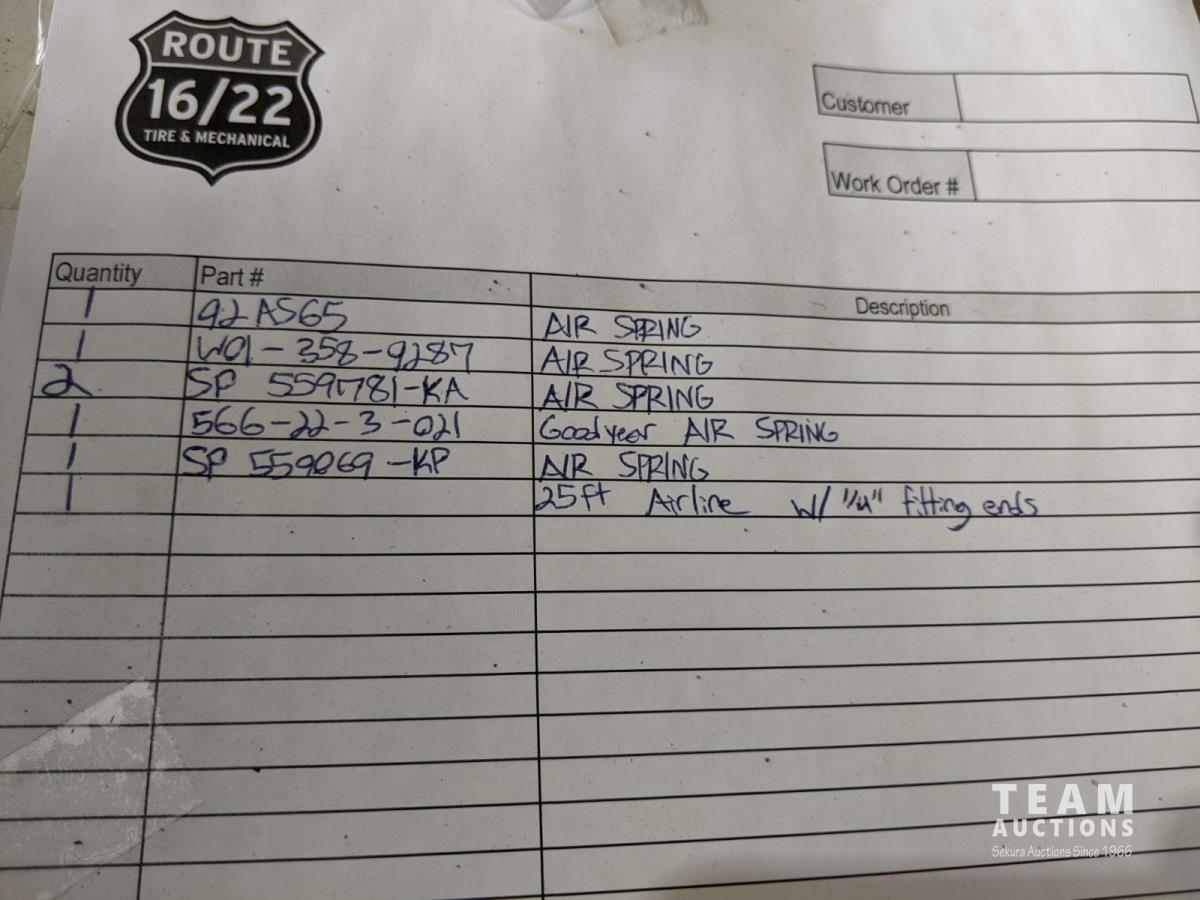 ROUTE
16/22
TIRE & MECHANICAL
Customer
Work Order #
Quantity Part # Description
1 92AS65 AIR SPRING
1 W01-358-9287 AIR SPRING
2 SP 559781-KA AIR SPRING
1 566-22-3-021 Goodyear AIR SPRING
1 SP 559069-KP AIR SPRING
1 25ft Airline w/ 1/4" fitting ends
TEAM
AUCTIONS
Sekura Auctions Since 1966